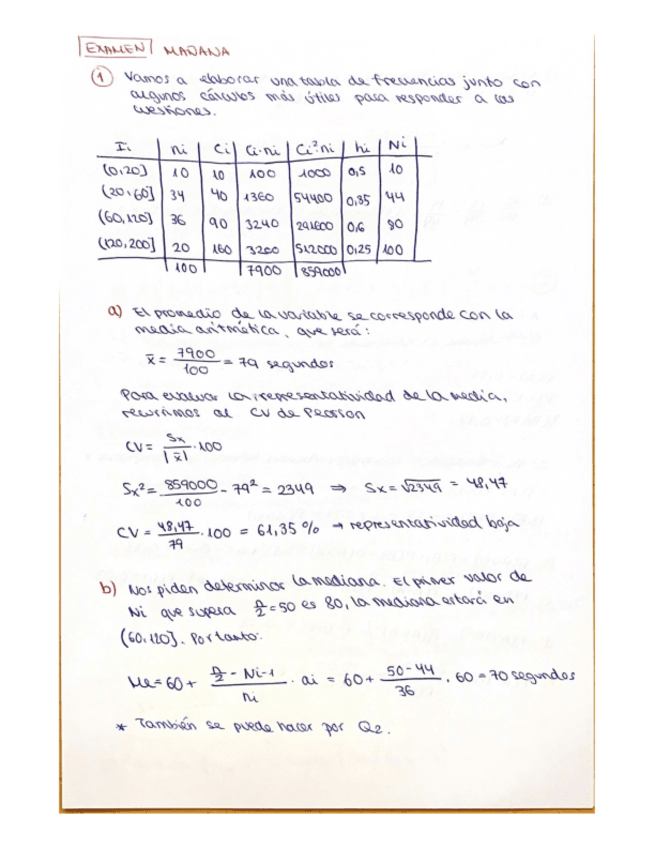 EXAMEN MAÑANA
1 Vamos a elaborar una tabla de frecuencias junto con
algunos cálculos más útiles para responder a las
cuestiones.
Ii ni Ci Ci·ni Ci²·ni hi Ni
(0,20] 10 10 100 1000 0,5 10
(20,60] 34 40 1360 54400 0,85 44
(60,120] 36 90 3240 291600 0,6 80
(120,200] 20 160 3200 512000 0,25 100
100 7900 859000
a) El promedio de la variable se corresponde con la
media aritmética, que será:
x̄ = 7900/100 = 79 segundos
Para evaluar la representatividad de la media,
recurrimos al CV de Pearson
CV = Sx/|x̄| · 100
Sx² = 859000/100 - 79² = 2349 ⇒ Sx = √2349 = 48,47
CV = 48,47/79 · 100 = 61,35 % → representatividad baja
b) Nos piden determinar la mediana. El primer valor de
Ni que supera n/2 = 50 es 80, la mediana estará en
(60,120]. Por tanto:
Me = 60 + (n/2 - Ni-1)/ni · ai = 60 + (50-44)/36 · 60 = 70 segundos
* También se puede hacer por Q2.